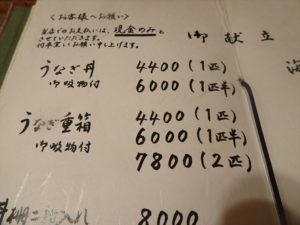 〈お客様へお願い〉
当店でのお支払いは、現金のみと
させていただきます。
何卒宜しくお願い申し上げます。
御献立
うなぎ丼 4400(1匹)
御吸物付 6000(1匹半)
うなぎ重箱 4400(1匹)
御吸物付 6000(1匹半)
7800(2匹)
8000